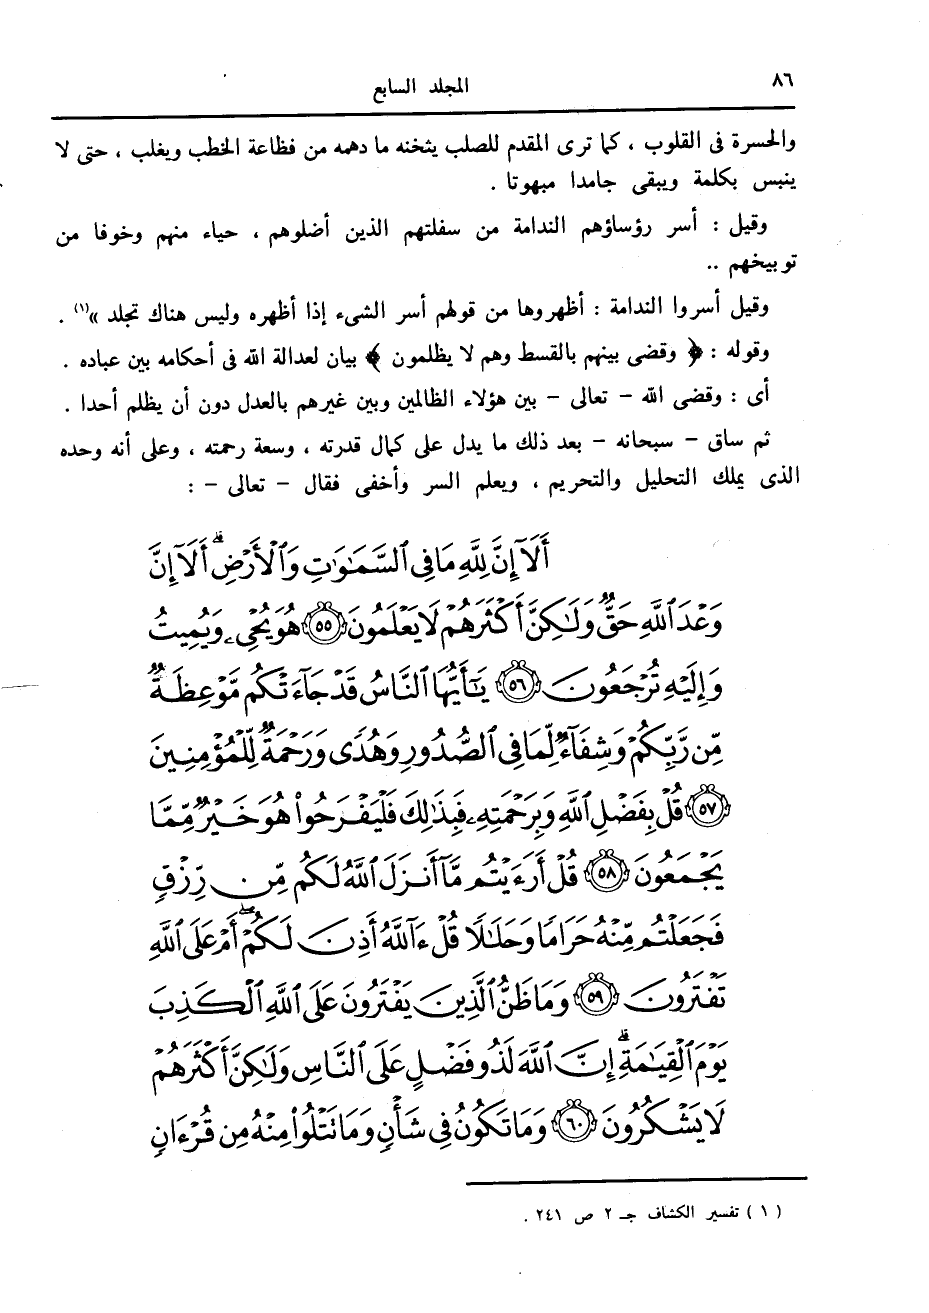 ٨٦
المجلد السابع
والحسرة فى القلوب ، كما ترى المقدم للصلب يثخنه ما دهمه من فظاعة الخطب ويغلب ، حتى لا
ينبس بكلمة ويبقى جامدا مبهوتا .
وقيل : أسر رؤساؤهم الندامة من سفلتهم الذين أضلوهم ، حياء منهم وخوفا من
توبيخهم ..
وقيل أسروا الندامة : أظهروها من قولهم أسر الشىء إذا أظهره وليس هناك تجلد »(١) .
وقوله : ﴿ وقضى بينهم بالقسط وهم لا يظلمون ﴾ بيان لعدالة الله فى أحكامه بين عباده .
أى : وقضى الله – تعالى – بين هؤلاء الظالمين وبين غيرهم بالعدل دون أن يظلم أحدا .
ثم ساق – سبحانه – بعد ذلك ما يدل على كمال قدرته ، وسعة رحمته ، وعلى أنه وحده
الذى يملك التحليل والتحريم ، ويعلم السر وأخفى فقال – تعالى – :
أَلَآ إِنَّ لِلَّهِ مَا فِى ٱلسَّمَٰوَٰتِ وَٱلْأَرْضِ ۗ أَلَآ إِنَّ
وَعْدَ ٱللَّهِ حَقٌّ وَلَٰكِنَّ أَكْثَرَهُمْ لَا يَعْلَمُونَ ۝٥٥ هُوَ يُحْىِۦ وَيُمِيتُ
وَإِلَيْهِ تُرْجَعُونَ ۝٥٦ يَٰٓأَيُّهَا ٱلنَّاسُ قَدْ جَآءَتْكُم مَّوْعِظَةٌ
مِّن رَّبِّكُمْ وَشِفَآءٌ لِّمَا فِى ٱلصُّدُورِ وَهُدًى وَرَحْمَةٌ لِّلْمُؤْمِنِينَ
۝٥٧ قُلْ بِفَضْلِ ٱللَّهِ وَبِرَحْمَتِهِۦ فَبِذَٰلِكَ فَلْيَفْرَحُوا۟ هُوَ خَيْرٌ مِّمَّا
يَجْمَعُونَ ۝٥٨ قُلْ أَرَءَيْتُم مَّآ أَنزَلَ ٱللَّهُ لَكُم مِّن رِّزْقٍ
فَجَعَلْتُم مِّنْهُ حَرَامًا وَحَلَٰلًا قُلْ ءَآللَّهُ أَذِنَ لَكُمْ ۖ أَمْ عَلَى ٱللَّهِ
تَفْتَرُونَ ۝٥٩ وَمَا ظَنُّ ٱلَّذِينَ يَفْتَرُونَ عَلَى ٱللَّهِ ٱلْكَذِبَ
يَوْمَ ٱلْقِيَٰمَةِ ۗ إِنَّ ٱللَّهَ لَذُو فَضْلٍ عَلَى ٱلنَّاسِ وَلَٰكِنَّ أَكْثَرَهُمْ
لَا يَشْكُرُونَ ۝٦٠ وَمَا تَكُونُ فِى شَأْنٍ وَمَا تَتْلُوا۟ مِنْهُ مِن قُرْءَانٍ
( ١ ) تفسير الكشاف جـ ٢ ص ٢٤١ .